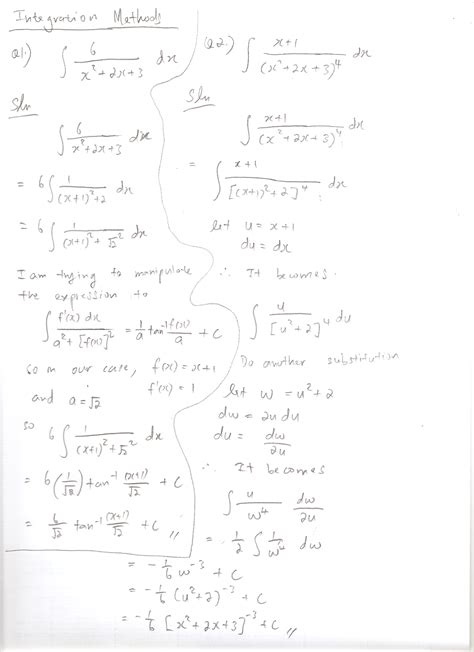 Integration Methods
Q1.) ∫ 6/(x²+2x+3) dx
Sln
∫ 6/(x²+2x+3) dx
= 6∫ 1/((x+1)²+2) dx
= 6∫ 1/((x+1)²+√2²) dx
I am trying to manipulate
the expression to
∫ f'(x) dx/(a²+[f(x)]²) = 1/a tan⁻¹ f(x)/a + C
so in our case, f(x) = x+1
f'(x) = 1
and a = √2
so 6∫ 1/((x+1)²+√2²) dx
= 6(1/√2) tan⁻¹ (x+1)/√2 + C
= 6/√2 tan⁻¹ (x+1)/√2 + C //
Q2.) ∫ x+1/(x²+2x+3)⁴ dx
Sln
∫ x+1/(x²+2x+3)⁴ dx
= ∫ x+1/[(x+1)²+2]⁴ dx
let u = x+1
du = dx
∴ It becomes.
∫ u/[u²+2]⁴ du
Do another substitution
let w = u²+2
dw = 2u du
du = dw/2u
∴ It becomes
∫ u/w⁴ dw/2u
= 1/2 ∫ 1/w⁴ dw
= -1/6 w⁻³ + C
= -1/6 (u²+2)⁻³ + C
= -1/6 [x²+2x+3]⁻³ + C //